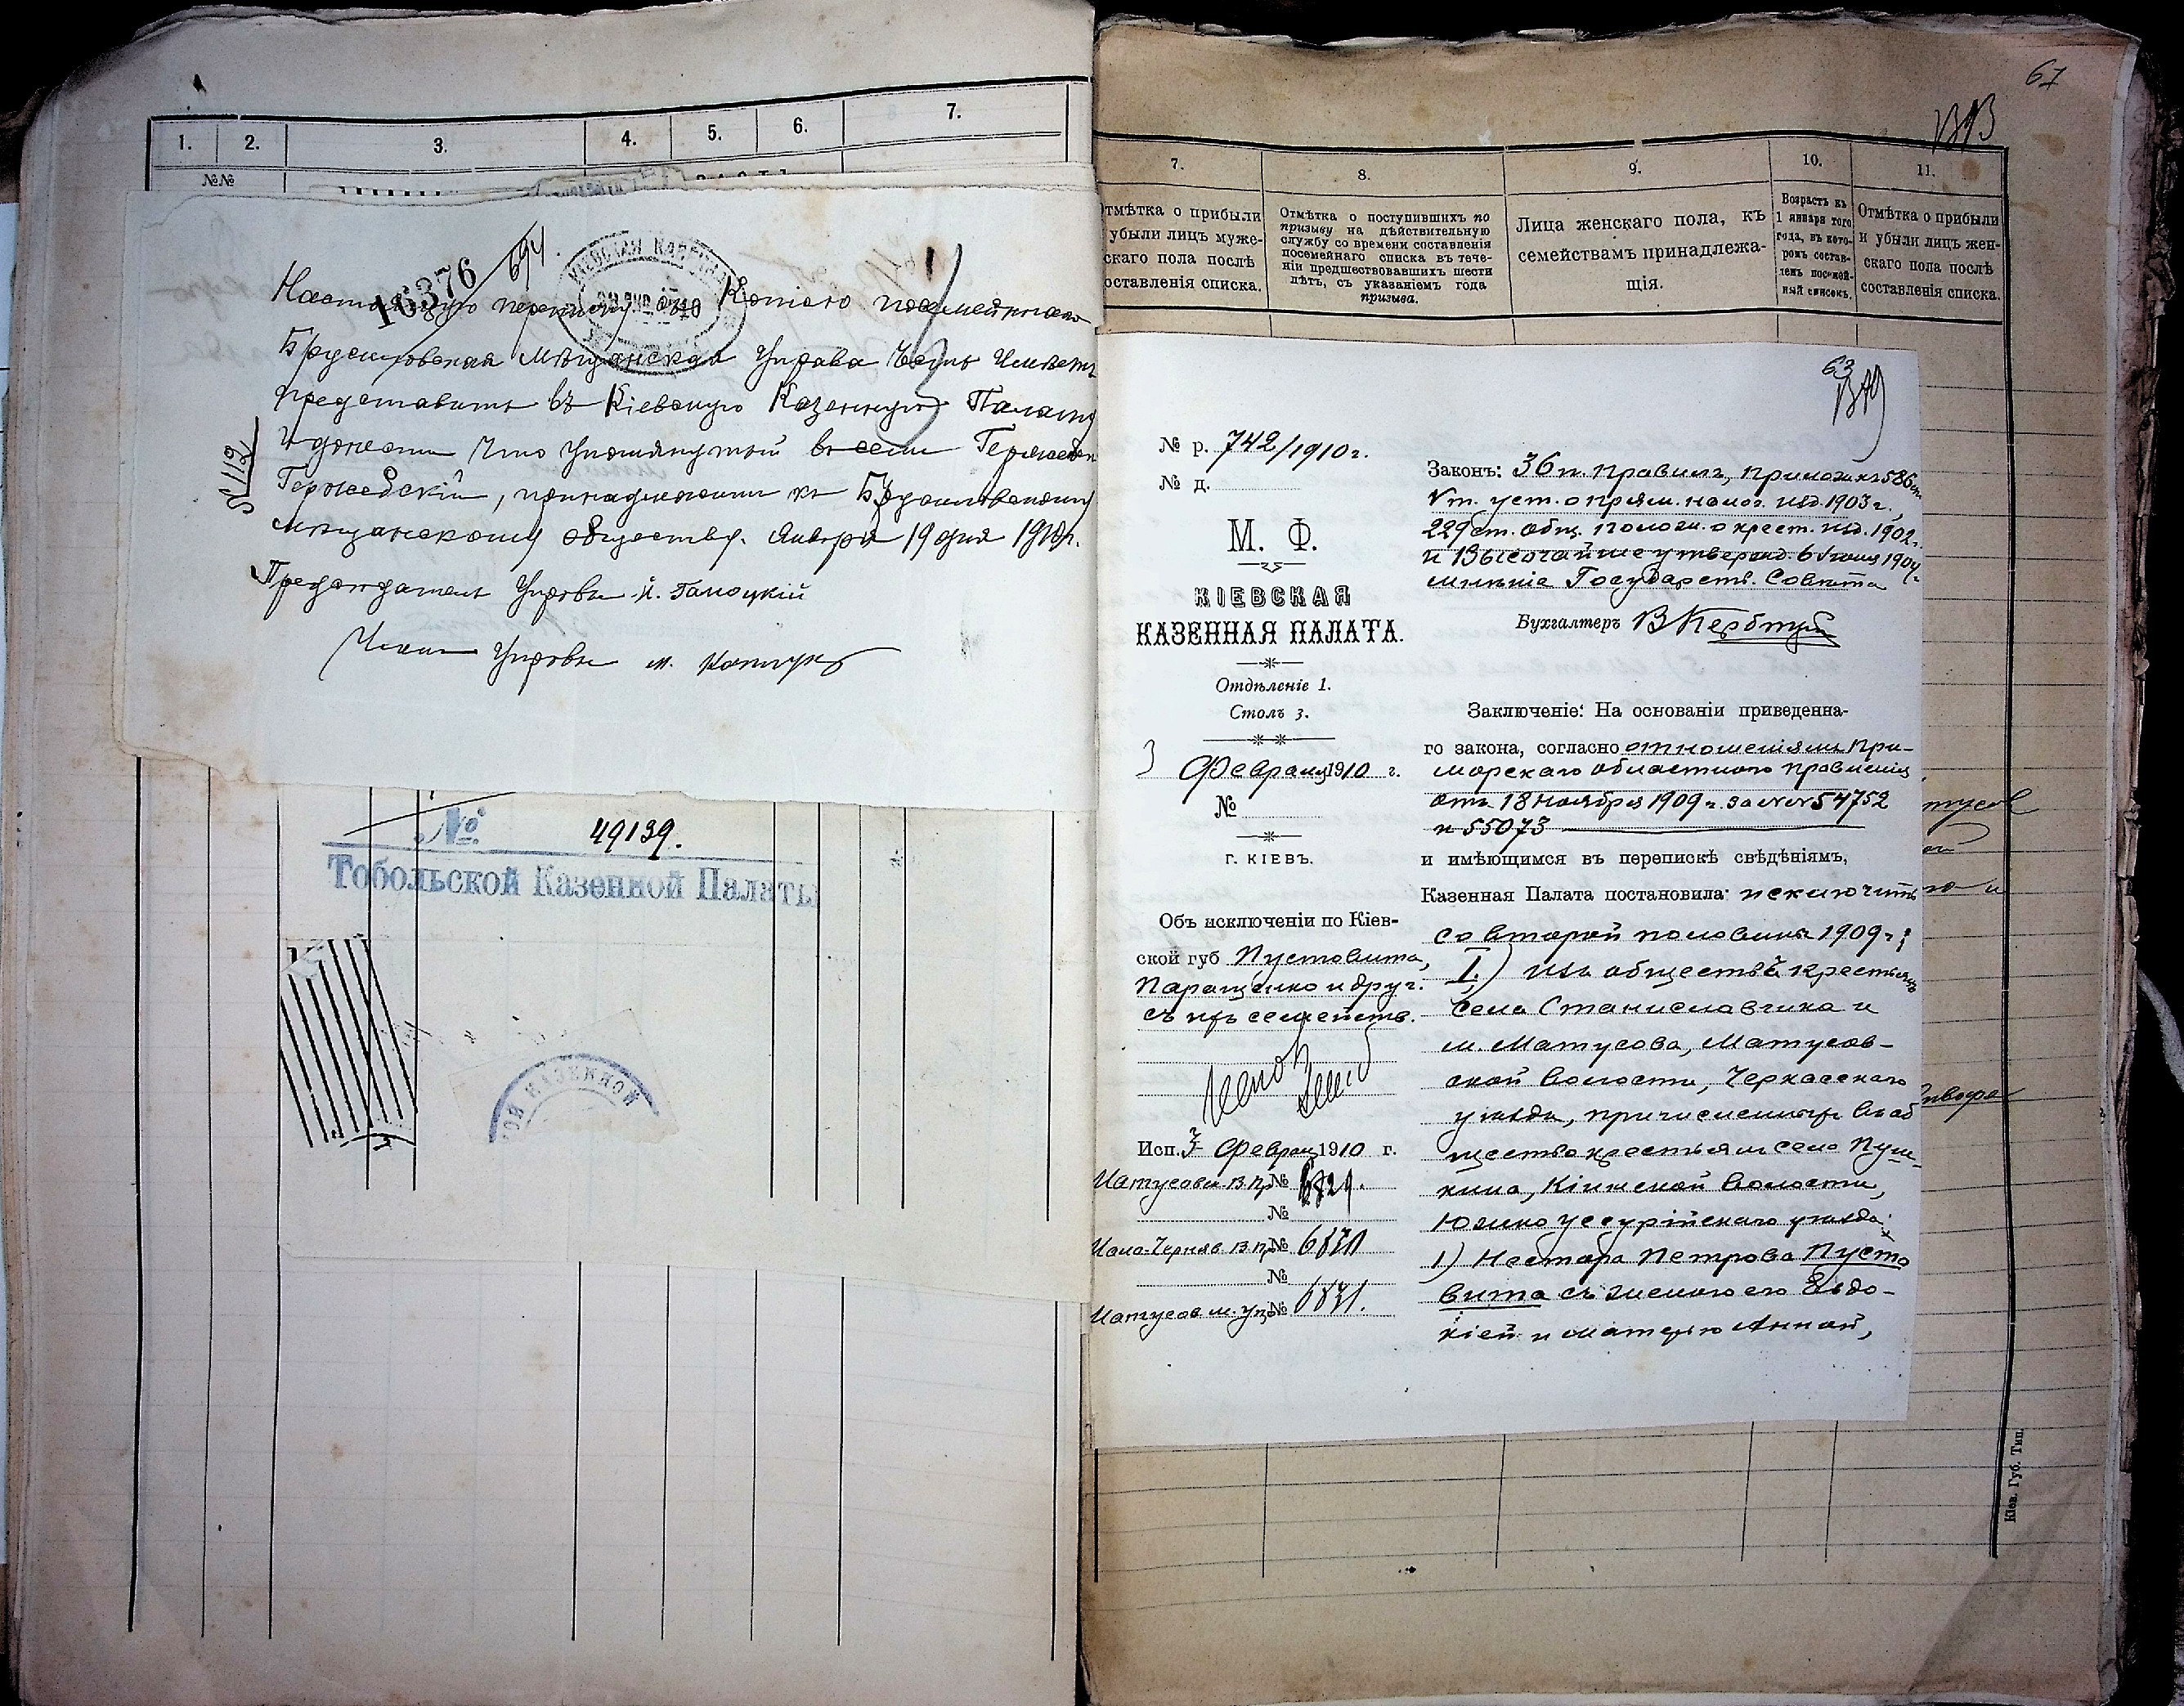 1. 2. 3. 4. 5. 6. 7.
№№
16376
694
Настоящую переписку съ Копіею посемейнаго
Брусиловская Мѣщанская Управа Честь Имѣетъ
представить въ Кіевскую Казенную Палату
и донести что упомянутый
Гержедскій, принадлежитъ къ Брусиловскому
мѣщанскому обществу. Января 19 дня 1910 г.
№ 112
Предсѣдатель Управы
Членъ Управы м.
№ 49139.
Тобольской Казенной Палаты
ОЙ КАЗЕННОЙ
67
7. 8. 9. 10. 11.
Отмѣтка о прибыли
убыли лицъ муже-
скаго пола послѣ
составленія списка.
Отмѣтка о поступившихъ по
призыву на дѣйствительную
службу со времени составленія
посемейнаго списка въ тече-
ніи предшествовавшихъ шести
лѣтъ, съ указаніемъ года
призыва.
Лица женскаго пола, къ
семействамъ принадлежа-
щія.
Возрастъ къ
1 января того
года, въ кото-
ромъ состав-
ленъ посемей-
ный списокъ.
Отмѣтка о прибыли
и убыли лицъ жен-
скаго пола послѣ
составленія списка.
63
№ р. 742/1910 г.
№ д.
М. Ф.
КІЕВСКАЯ
КАЗЕННАЯ ПАЛАТА.
Отдѣленіе 1.
Столъ 3.
3 Февраля 1910 г.
№
Г. КІЕВЪ.
Объ исключеніи по Кіев-
ской губ Пустовита,
Паращенко и друг.
съ ихъ семейств.
Исп. 3 Февраля 1910 г.
Матусовск. В. Пр. № 6829.
№
Мало-Черняв. В. Пр. № 6830
№
Матусов. м. упр. № 6831.
Законъ: 36 п. правилъ, приложен. къ 586 ст.
V т. уст. о прям. налог. изд. 1903 г.,
229 ст. общ. полож. о крест. изд. 1902 г.
и Высочайше утвержд. 6 Іюня 1904 г.
мнѣніе Государств. Совѣта
Бухгалтеръ
Заключеніе: На основаніи приведенна-
го закона, согласно отношеніямъ При-
морскаго областного правленія
отъ 18 ноября 1909 г. за №№ 54752
и 55073
и имѣющимся въ перепискѣ свѣдѣніямъ,
Казенная Палата постановила: исключить
со второй половины 1909 г:
I.) изъ обществъ крестьянъ
села Станиславчика и
м. Матусова, Матусов-
ской волости, Черкасскаго
уѣзда, причисленныхъ въ об
щество крестьянъ села Пуш-
кина, Кіевской волости,
Южно Уссурійскаго уѣзда:
1) Нестора Петрова Пусто
вита съ женою его Евдо-
кіей и матерью Анной,
Кіев. Губ. Тип.